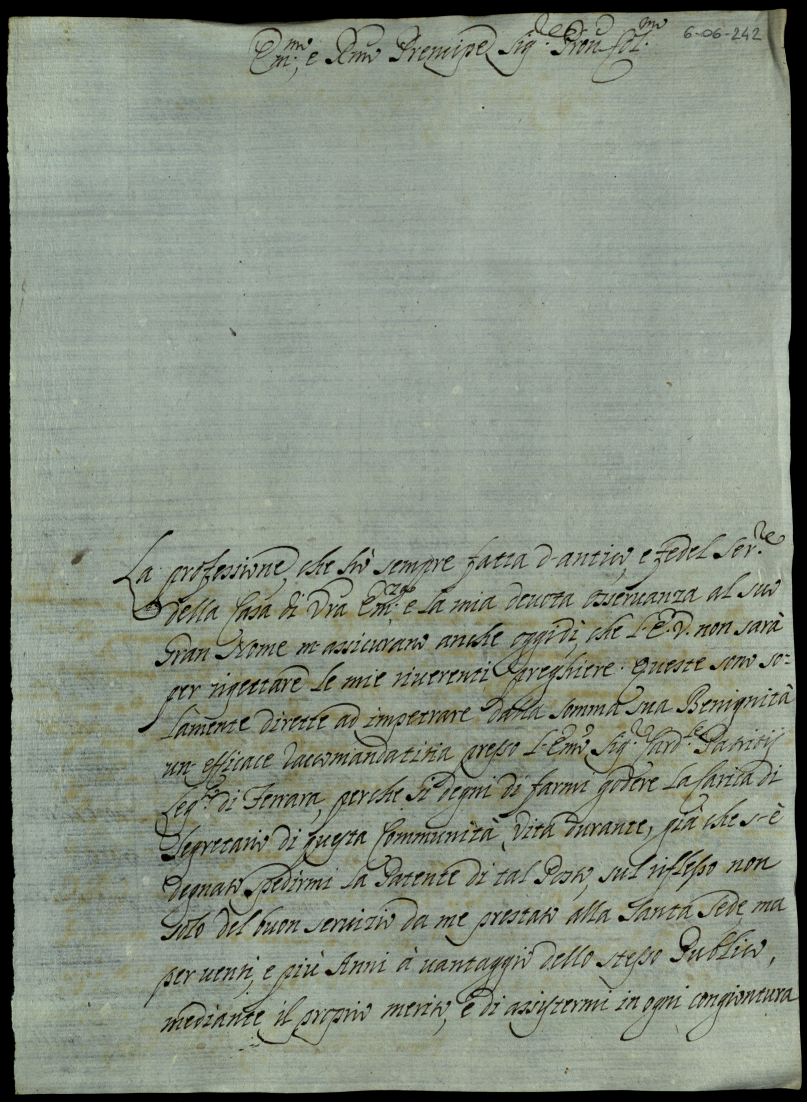 Em.mo, e R.mo Prencipe Sig.re Pron Col.mo
6-06-242
La professione, che hò sempre fatta d'antico, e fedel Ser.re
della Casa di Vra Em.za, e la mia devota osseruanza al suo
Gran Nome m'assicurano anche oggidì, che l'E. V. non sarà
per rigettare le mie riuerenti preghiere. Queste sono so=
lamente dirette ad impetrare dalla somma sua Benignità
un' efficace raccomandatitia presso l'Em.o Sig.r Card.le Patritij
Leg.to di Ferrara, perche si degni di farmi godere la Carica di
Segretario di questa Communità, vita durante, già che s'è
degnato spedirmi la Patente di tal Posto, sul riflesso non
solo del buon seruizio da me prestato alla Santa Sede, ma
per uenti, e più Anni à uantaggio dello stesso Publico,
mediante il proprio merito, e di assistermi in ogni congiontura